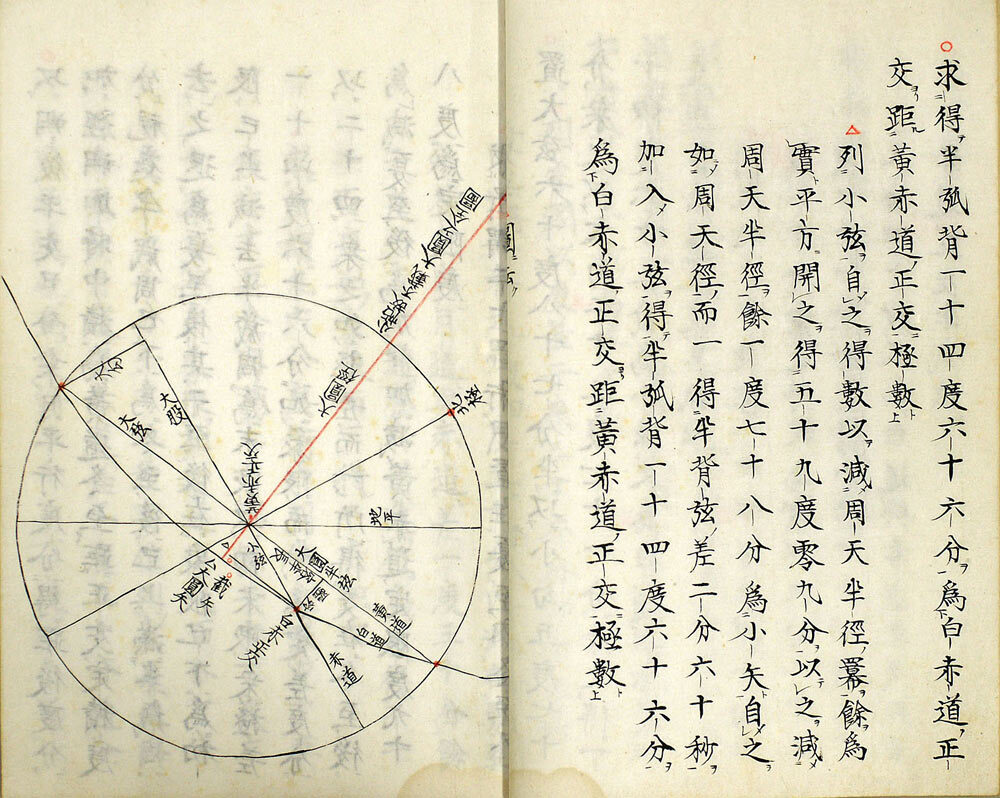 求得半弧背一十四度六十六分爲白赤道正
交距黄赤道正交極數
列小弦自之得數以減周天半徑冪餘爲
實平方開之得五十九度零九分以之減
周天半徑餘一度七十八分爲小矢自之
如周天徑而一得半背弦差二分六十秒
加入小弦得半弧背一十四度六十六分
爲白赤道正交距黄赤道正交極數
大圓徑
北極
黄赤正交
大勾
大股
大弦
地平
小弦
大圓半弦
黄道
白道
赤道
白赤正交
截矢
大圓矢